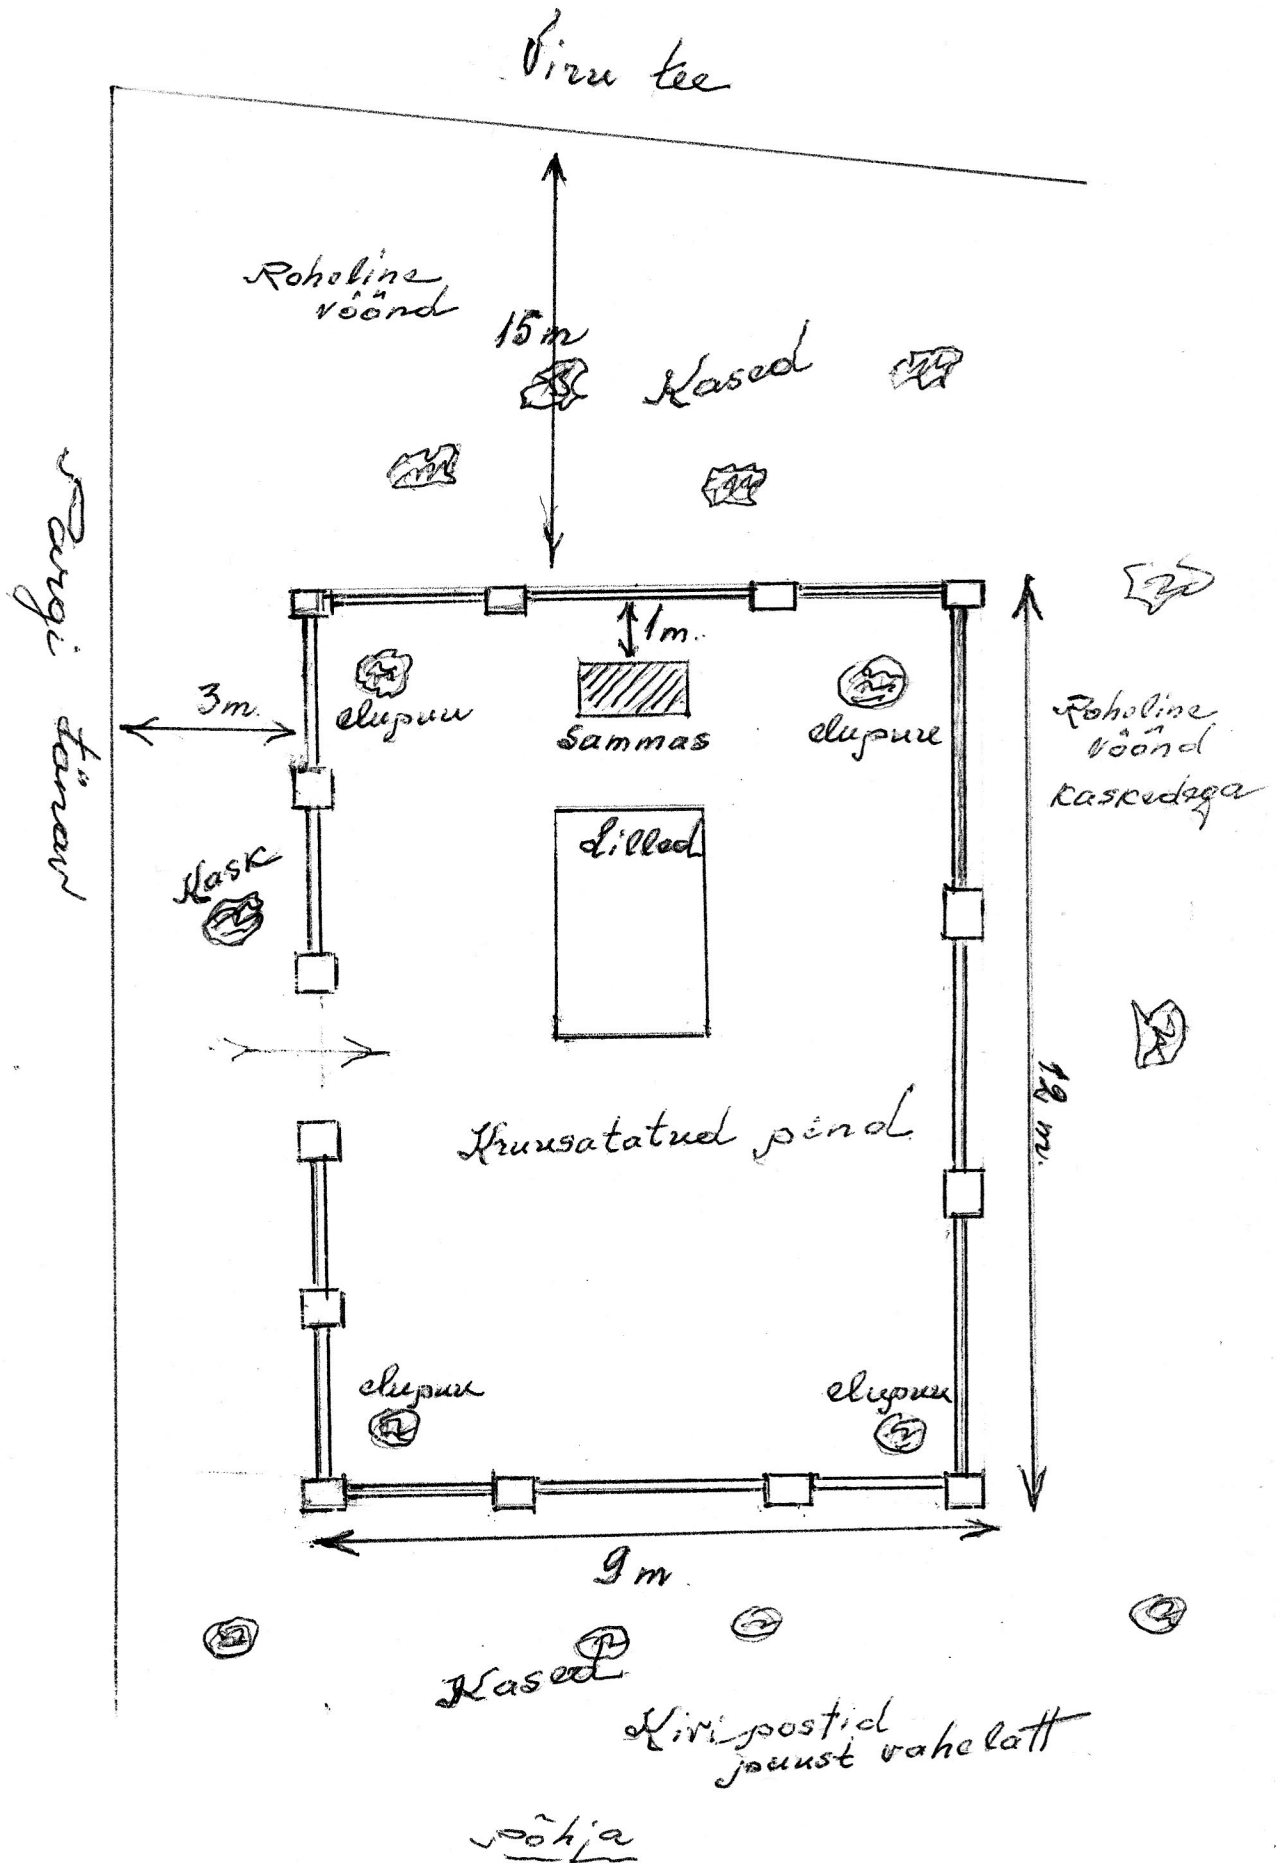 Viru tee
Roheline
vöönd
15m
Kased
Pargi tänav
1m.
3m.
elupuu
Sammas
elupuu
Roheline
vöönd
kaskedega
Lilled
Kask
12 m.
Kruusatatud pind
elupuu
elupuu
9m.
Kased
Kivipostid
puust vahelatt
Põhja